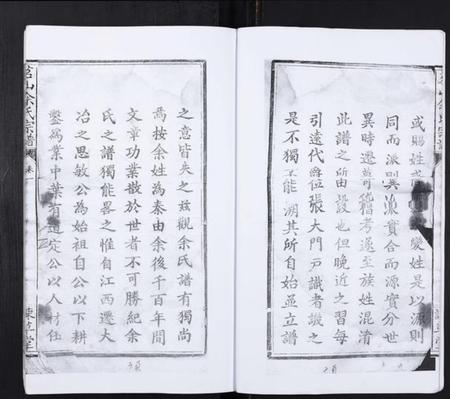 或賜姓或
變姓是以源則
同而派則異派實合而源實分世
異時遷莫可稽考遂至族姓混淆
此譜之所由設也但晚近之習每
引遠代爵位張大門戶識者譏之
是不獨不能溯其所自始並立譜
之意皆失之茲觀余氏譜有獨尚
焉按余姓為秦由余後千百年間
文章功業散於世者不可勝紀余
氏之譜獨能畧之惟自江西遷大
冶之思敏公為始祖自公以下耕
鑿為業中葉有道定公以人材任
山余氏宗譜
卷一